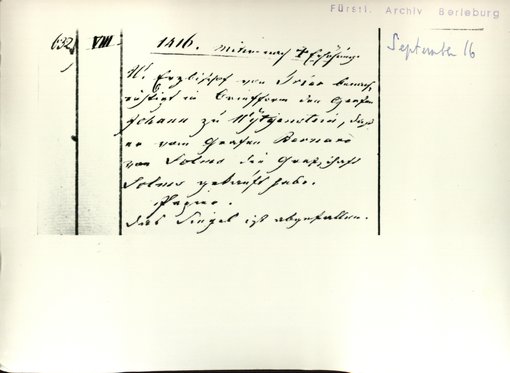 Fürstl. Archiv Berleburg
September 16
632, VIII. 1416. Mittw. nach + Erhöhung.
W. Erzbischof von Trier benach-
richtigt in Briefform den Grafen
Johann zu Wytgenstein, dass
er vom Grafen Bernard
von Solms die Grafschaft
Solms gekauft habe.
Papier.
Das Siegel ist abgefallen.